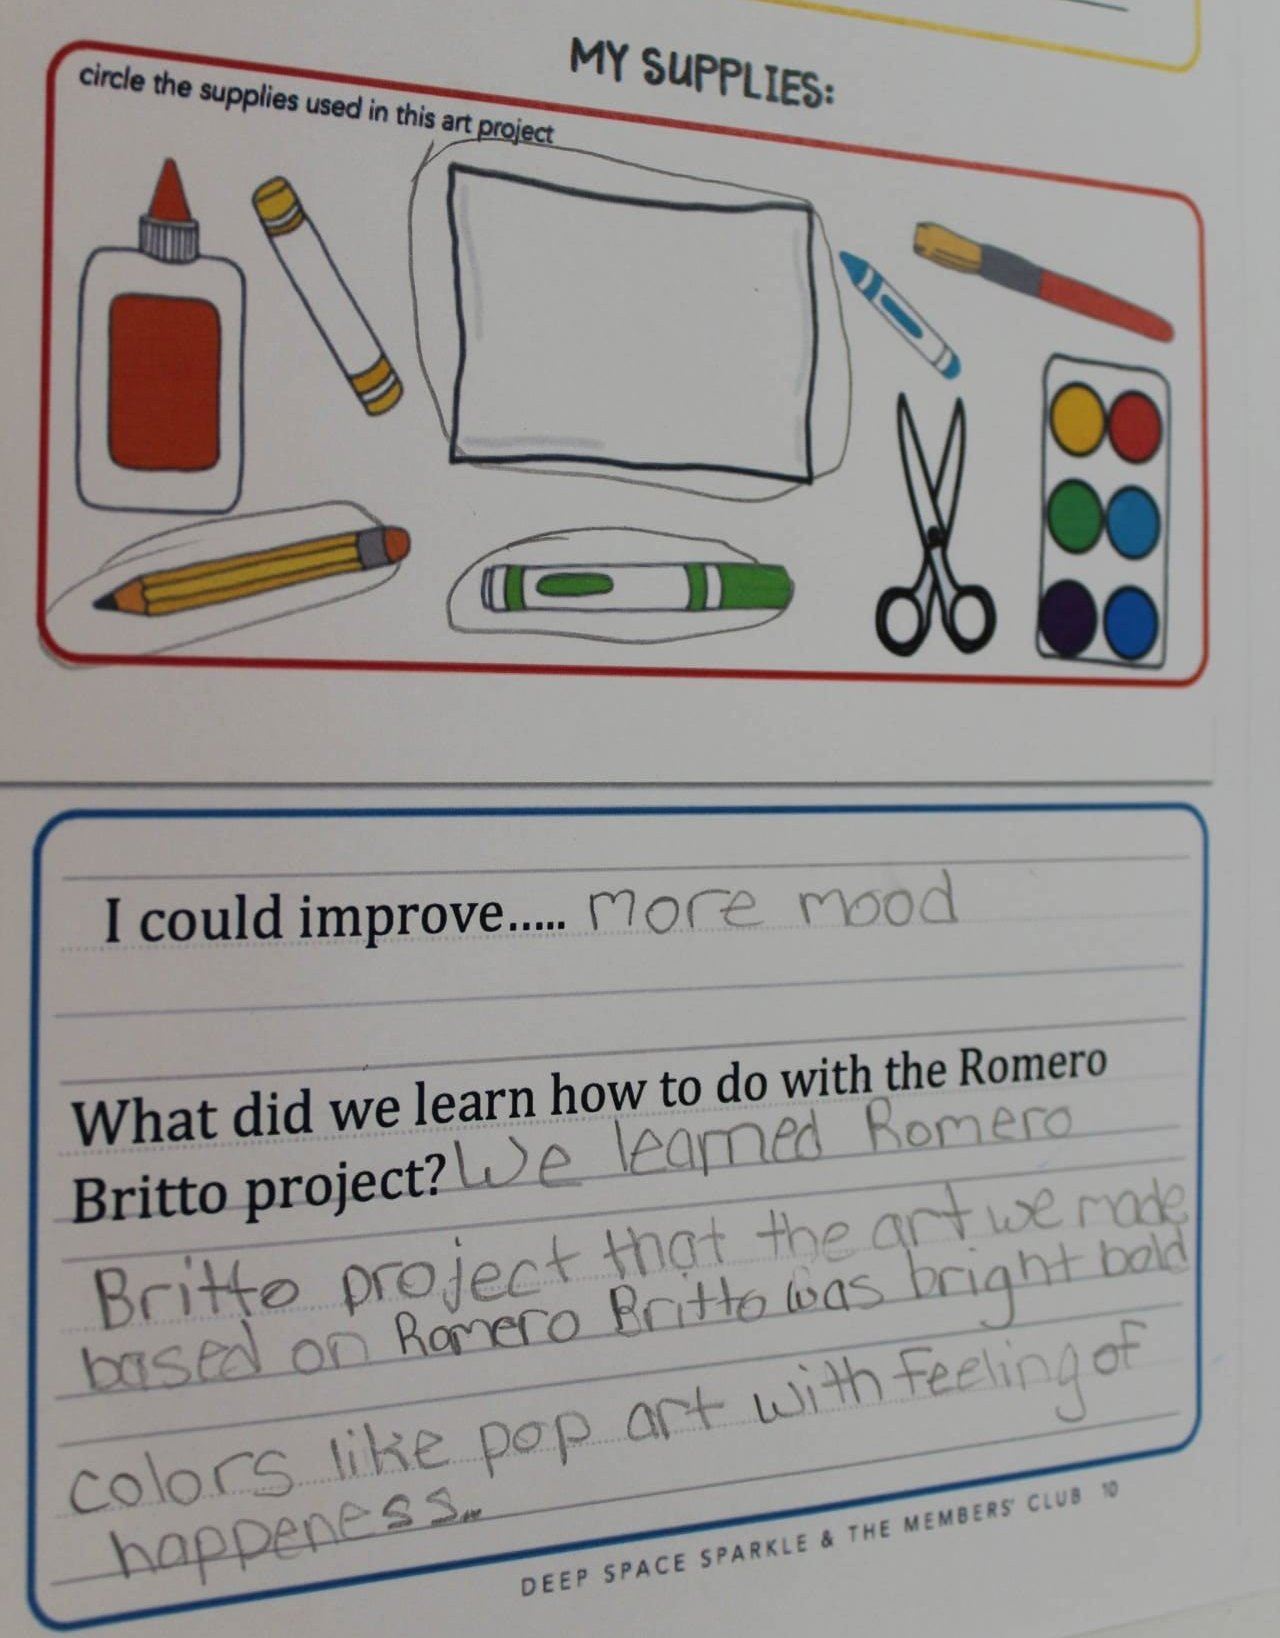 MY SUPPLIES:
circle the supplies used in this art project
I could improve..... more mood
What did we learn how to do with the Romero
Britto project? We learned Romero
Britto project that the art we made
based on Romero Britto was bright bold
colors like pop art with feeling of
happeness..
DEEP SPACE SPARKLE & THE MEMBERS' CLUB 10